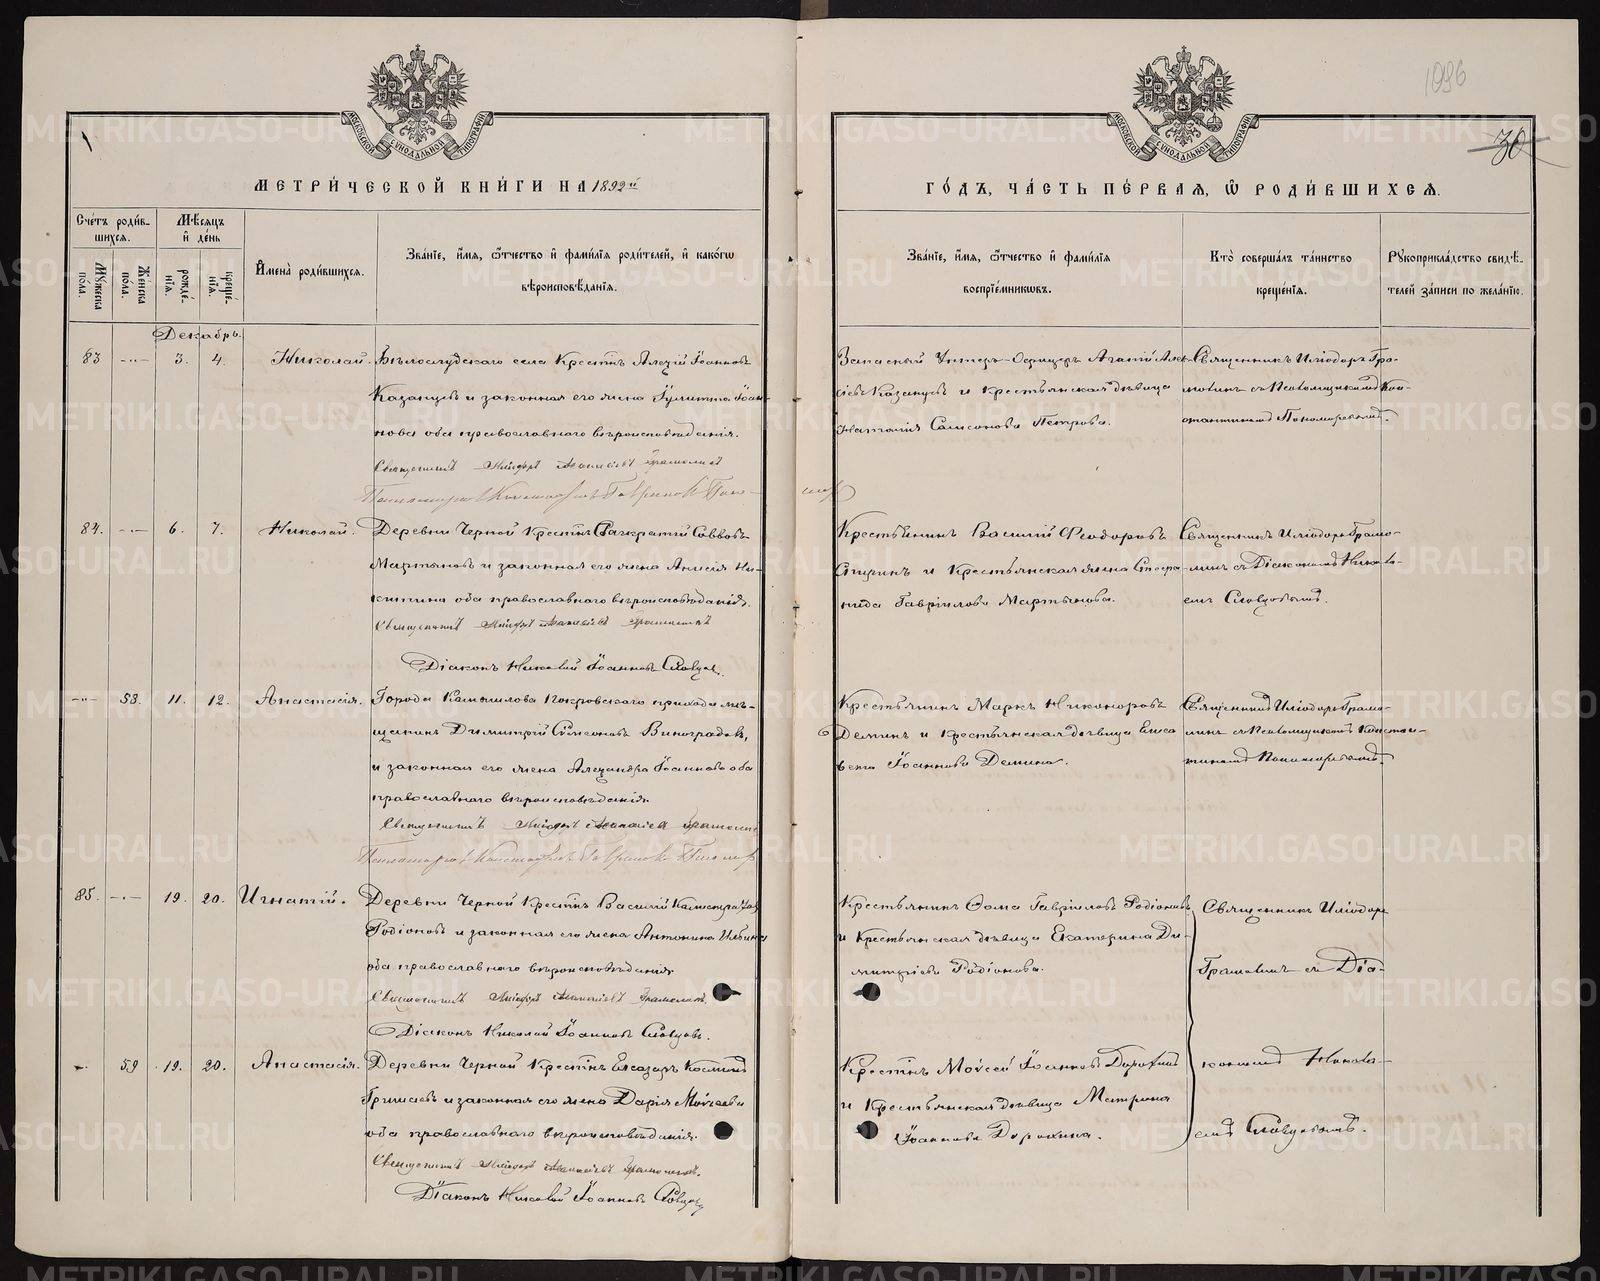 1096
30
МОСКОВСКОЙ СѴНОДАЛЬНОЙ ТИПОГРАФІИ
МОСКОВСКОЙ СѴНОДАЛЬНОЙ ТИПОГРАФІИ
МЕТРИ́ЧЕСКОЙ КНИ́ГИ НА 1892й
ГО́ДЪ, ЧА́СТЬ ПЕ́РВАЯ, Ѿ РОДИ́ВШИХСЯ.
Сче́тъ роди́в-
шихся.
Мѣ́сяцъ
и҆ де́нь
Мꙋжеска пола.
Же́нска по́ла.
рожде́-
нїѧ.
креще́-
нїѧ.
И҆мена̀ роди́вшихся.
Зва́нїе, и҆́мѧ, ѻ҆́тчество и҆ фами́лїѧ роди́телей, и҆ како́гѡ
вѣроисповѣ́данїѧ.
Зва́нїе, и҆́мѧ, ѻ҆́тчество и҆ фами́лїѧ
воспрїе́мникѡвъ.
Кто̀ соверша́лъ та́инство
креще́нїѧ.
Рꙋкоприкла́дство свидѣ́-
телей за́писи по жела́нїю.
Декабрь.
83 3. 4. Николай. Бѣлослудскаго села Крестн Алексій Іоанновъ
Казанцевъ и законная его жена Іулитта Іоан-
нова оба православнаго вѣроисповѣданія.
Священникъ
Запасный Унтеръ-Офицеръ Агапій Алек-
сіевъ Казанцевъ и крестьянская дѣвица
Наталія Самсонова Петрова.
Священникъ Иліодоръ Гра-
молинъ съ Псаломщикомъ Кон-
стантиномъ Пономаревымъ.
84. 6. 7. Николай. Деревни Черной Крестнъ Панкратій Саввовъ
Мартьяновъ и законная его жена Анисія Ни-
китина оба православнаго вѣроисповѣданія.
Священникъ
Діаконъ Николай Іоанновъ Словцовъ.
Крестьянинъ Василій Ѳеодоровъ
Спиринъ и Крестьянская жена Стефа-
нида Гавріилова Мартьянова.
Священникъ Иліодоръ Грамо-
линъ съ Діакономъ Никола-
емъ Словцовымъ.
58. 11. 12. Анастасія. Города Камышлова Покровскаго прихода мѣ-
щанинъ Димитрій Симеоновъ Виноградовъ,
и законная его жена Александра Іоаннова оба
православнаго вѣроисповѣданія.
Священникъ
Крестьянинъ Маркъ Никаноровъ
Деминъ и Крестьянская дѣвица Елиса-
вета Іоаннова Демина.
Священникъ Иліодоръ Грамо-
линъ съ Псаломщикомъ Констан-
тиномъ Пономаревымъ.
85. 19. 20. Игнатій. Деревни Черной Крестнъ Василій Калистратовъ
Родіоновъ и законная его жена Антонина Ильина
оба православнаго вѣроисповѣданія.
Священникъ
Діаконъ Николай Іоанновъ Словцовъ.
Крестьянинъ Ѳома Гавріиловъ Родіоновъ
и Крестьянская дѣвица Екатерина Ди-
митріева Родіонова.
Священникъ Иліодоръ
Грамолинъ съ Діа-
кономъ Никола-
емъ Словцовымъ.
59 19. 20. Анастасія. Деревни Черной Крестнъ Елеазаръ Косминъ
Гришаевъ и законная его жена Дарія Моѵсеева
оба православнаго вѣроисповѣданія.
Священникъ
Діаконъ Николай Іоанновъ Словцовъ
Крестнъ Моѵсей Іоанновъ Дорохинъ
и Крестьянская дѣвица Матрона
Іоаннова Дорохина.
METRIKI.GASO-URAL.RU